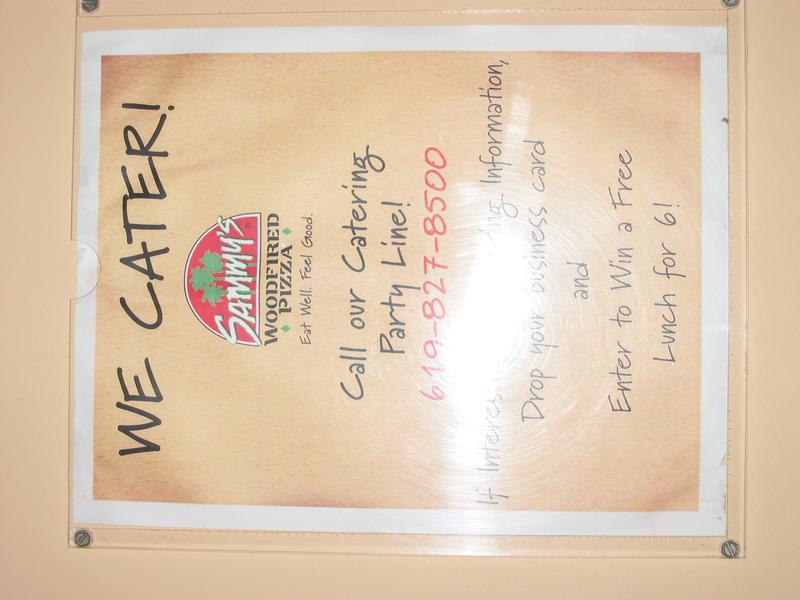 WE CATER!
SAMMY'S
WOODFIRED
PIZZA
Eat Well. Feel Good.
Call our Catering
Party Line!
619-827-8500
If Information,
Drop your business card
and
Enter to Win a Free
Lunch for 6!